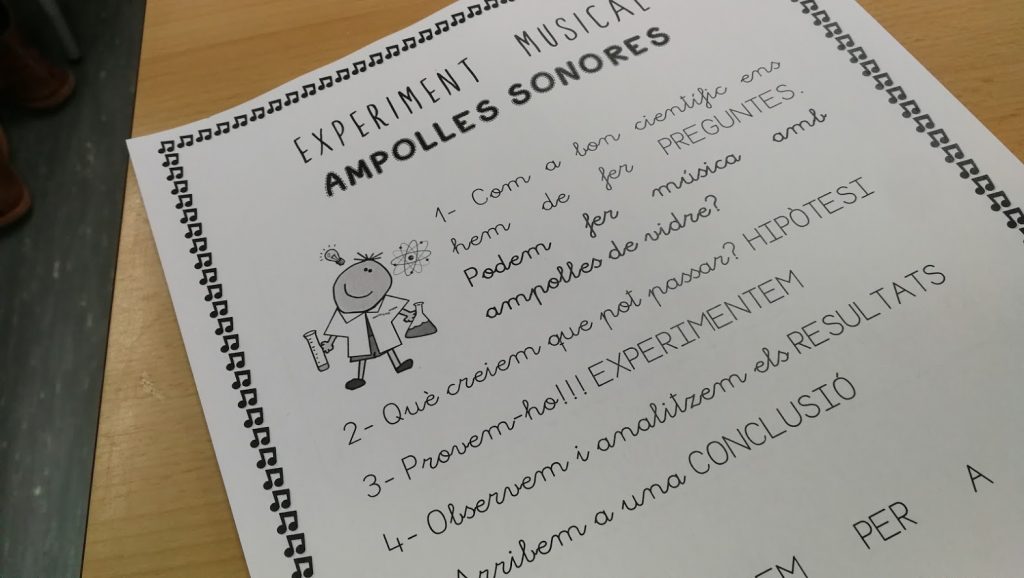 EXPERIMENT MUSICAL
AMPOLLES SONORES
1- Com a bon científic ens
hem de fer PREGUNTES.
Podem fer música amb
ampolles de vidre?
2- Què creiem que pot passar? HIPÒTESI
3- Provem-ho!!! EXPERIMENTEM
4- Observem i analitzem els RESULTATS
Arribem a una CONCLUSIÓ
PER A